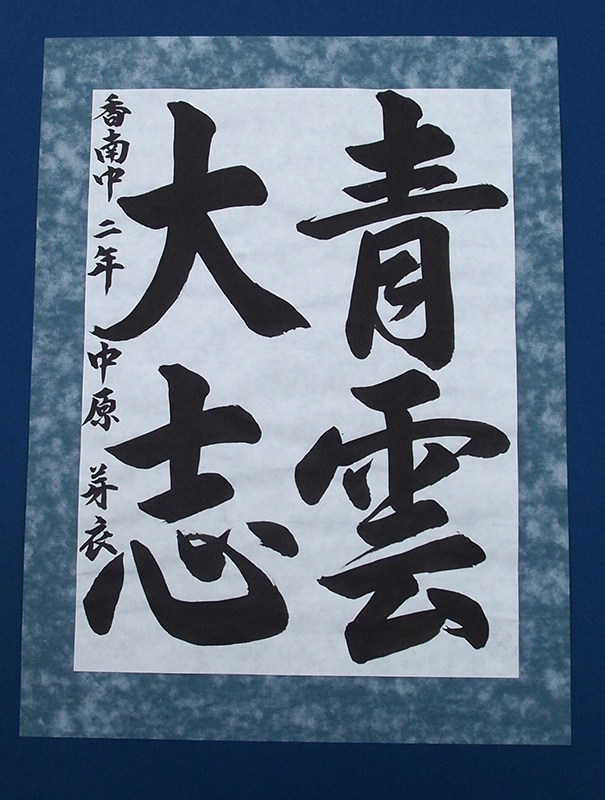 青雲
大志
香南中 二年 中原 芽衣